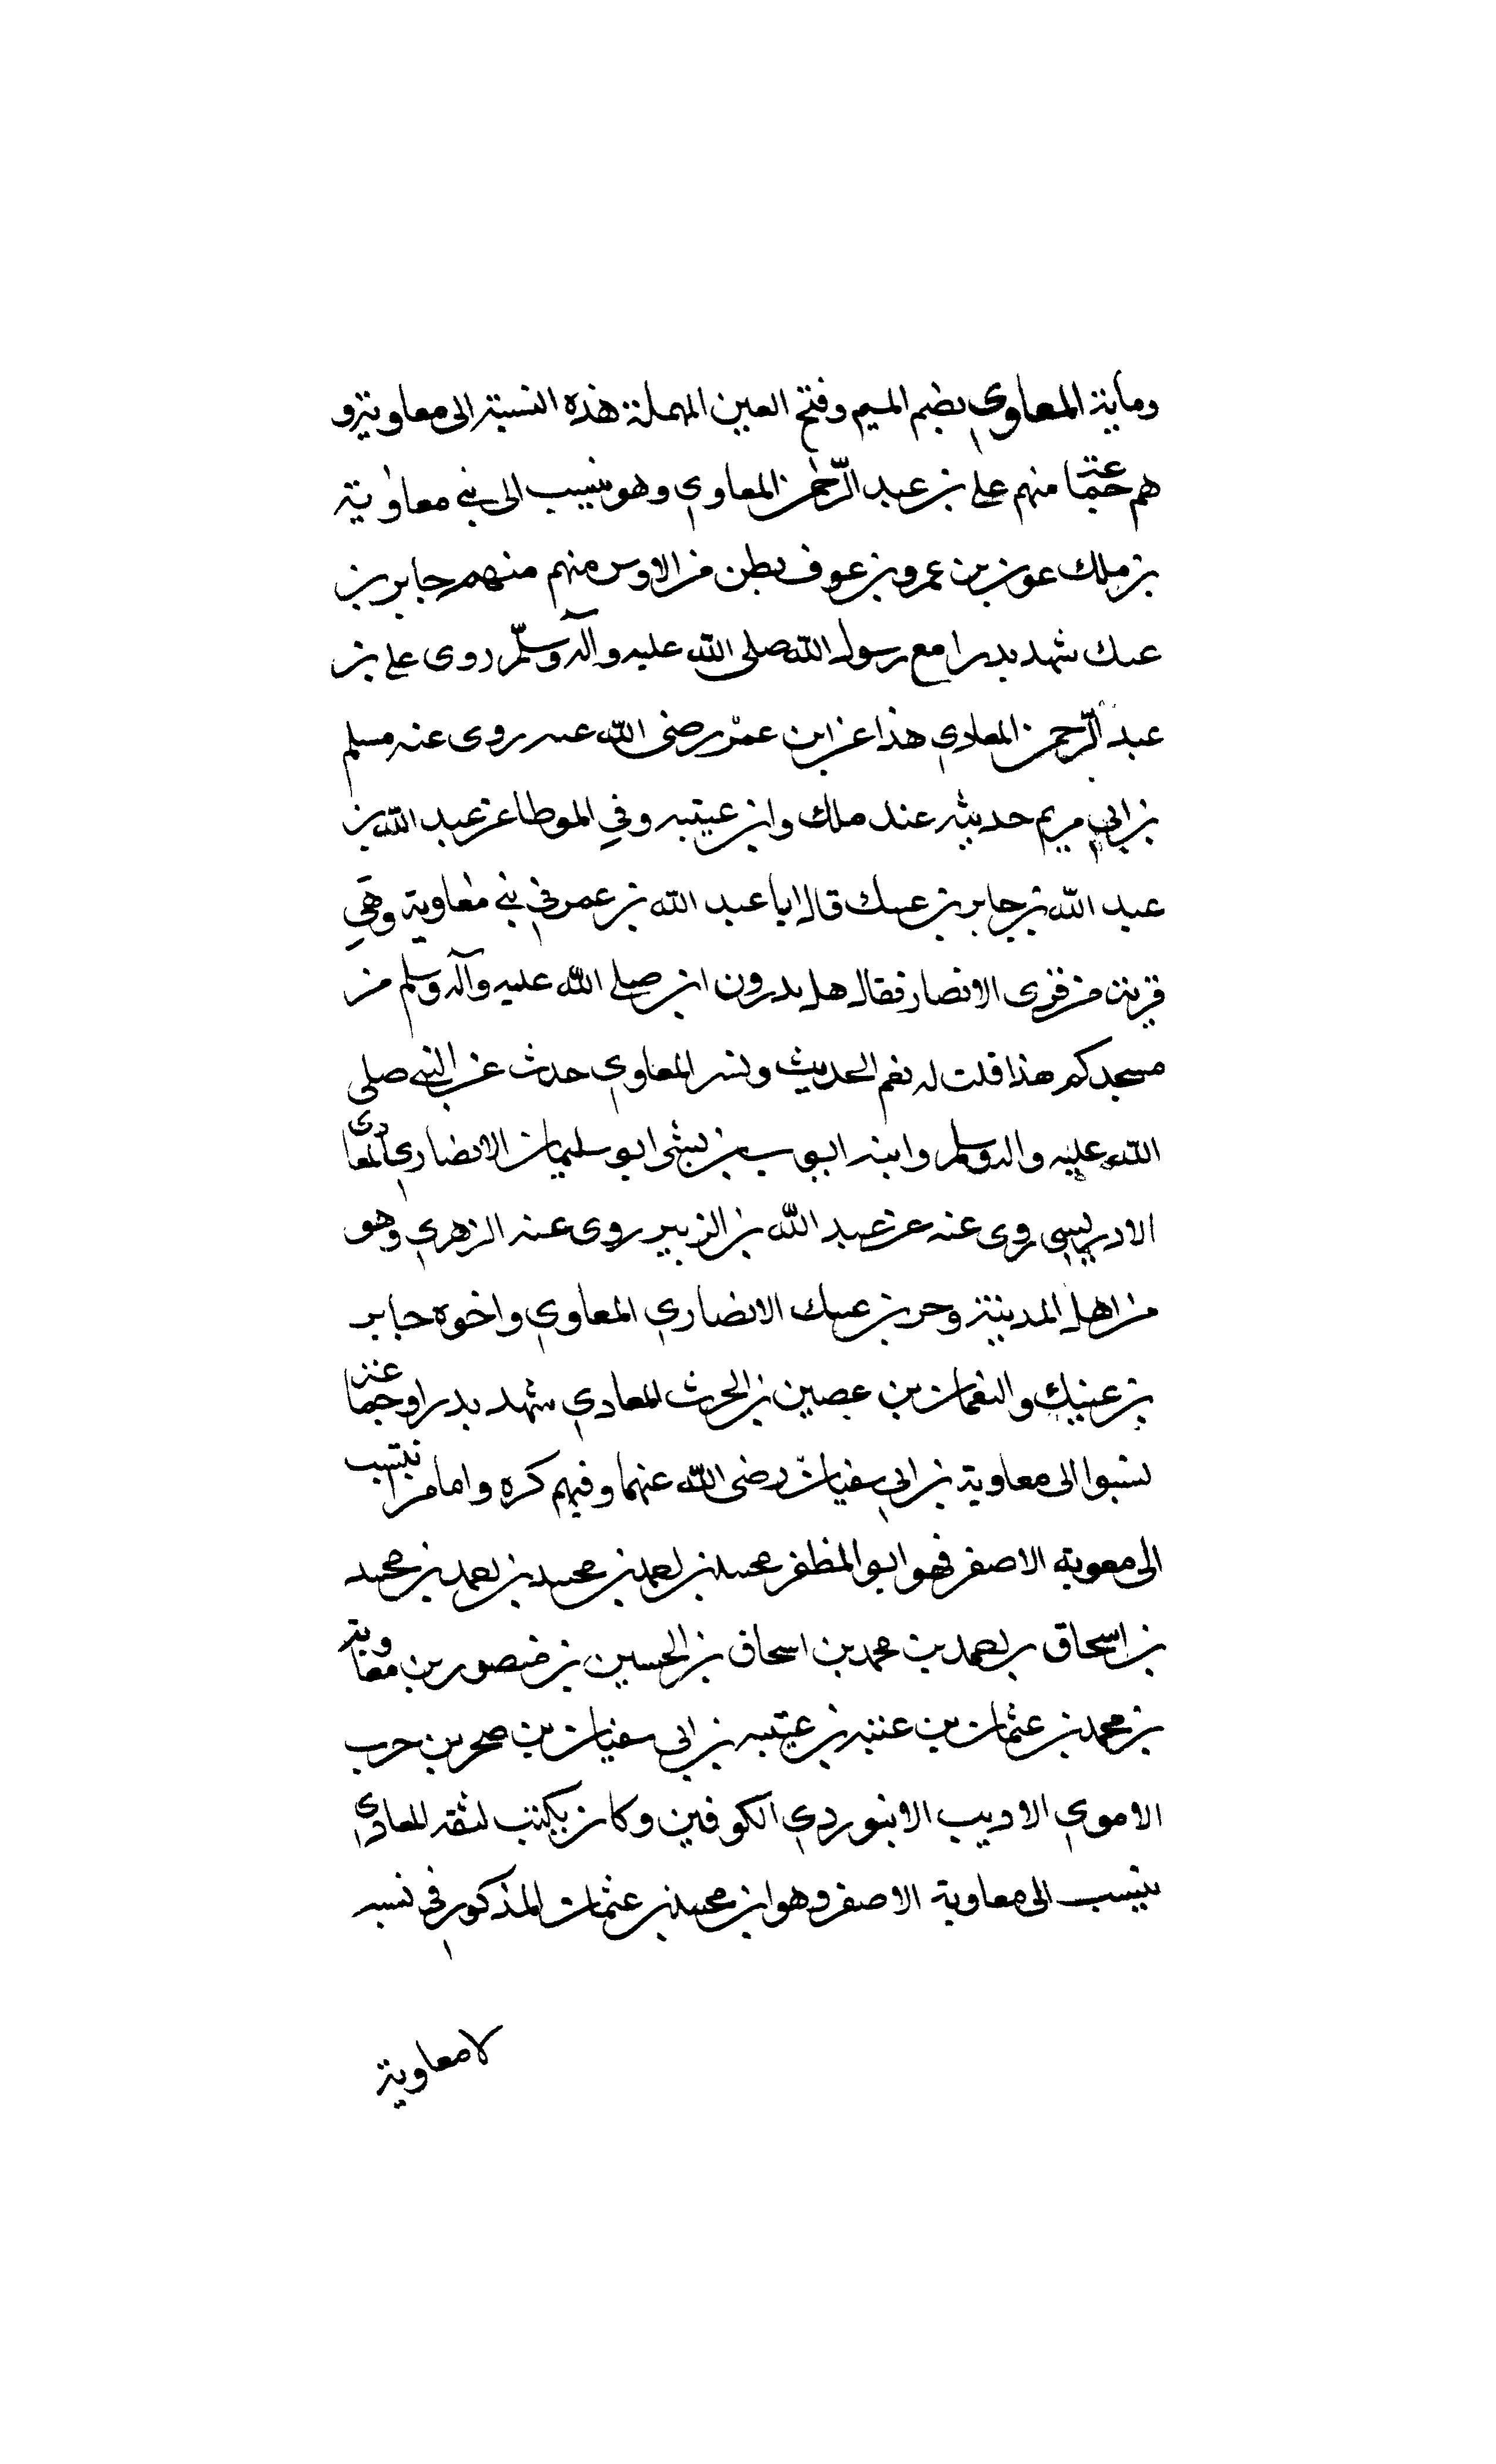 ومأية المعاوي بضم الميم وفتح العين المهملة هذه النسبة الى معاوية و
هم جماعة منهم علي بن عبد الرحمن المعاوي وهو ينسب الى بني معاوية
بن ملك عوز بن عمرو بن عوف بطن من الاوس منهم منهم جابر بن
عتك شهد بدرا مع رسول الله صلى الله عليه وآله وسلّم روى علي بن
عبد الرّحمن المعاوي هذا عن ابن عمر رضى الله عنه روى عنه مسلم
بن ابي مريم حديثه عند ملك وابن عيينه وفي الموطا عن عبد الله بن
عبد الله بن جابر بن عتك قال ابا عبد الله بن عمر في بني معاوية وهي
قرية من قرى الانصار فقال هل تدرون اين صلى الله عليه وآله وسلم من
مسجدكم هذا قلت له نعم الحديث وبشر المعاوي حدث عن النبي صلى
الله عليه واله وسلم وابنه ايوب بن بشي ابو سليمان الانصاري المعاوى
الادريسي روى عنه عن عبد الله بن الزبير روى عنه الزهري وهو
من اهل المدينة وحر بن عتك الانصاري المعاوي واخوه جابر
بن عتيك والنعمان بن عصين بن الحرث المعاوي شهد بدرا وجماعة
نسبوا الى معاوية بن ابي سفيان رضى الله عنهما وفيهم كره واما من ينتسب
الى معوية الاصغر فهو ابو المظفر محمد بن احمد بن محمد بن احمد بن محمد
بن اسحاق بن احمد بن محمد بن اسحاق بن الحسين بن منصور بن معاوية
بن محمد بن عثمان بن عتبه بن عتبه بن ابى سفيان بن صخر بن حرب
الاموي الاديب الابيوردي الكوفين وكان يكتب لنفسه المعاوي
ينسب الى معاوية الاصغر وهو ابن محمد بن عثمان المذكور في نسبه
لا معاوية